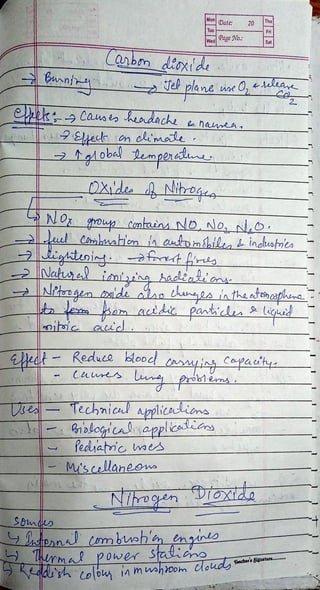 Mon Date: 20 Thu
Tue Fri
Wed Page No.: Sat
Carbon dioxide
→ Burning → Jet plane use O2 & release CO2
Effects: → Causes headache & nausea.
→ Effect on climate.
→ ↑ global temperature.
Oxides of Nitrogen
↳ NOx group contains NO, NO2, N2O.
→ fuel combustion in automobiles & industries
→ lightening. → forest fires
→ Natural ionizing radiations.
→ Nitrogen oxide also changes in the atmosphere
to form acidic particles & liquid
nitric acid.
Effect - Reduce blood carrying capacity.
- causes lung problems.
Uses - Technical applications
- Biological applications
- Pediatric uses
- Miscellaneous
Nitrogen Dioxide
sources
↳ Internal combustion engines
↳ Thermal power stations
↳ Reddish colour in mushroom clouds Teacher's Signature